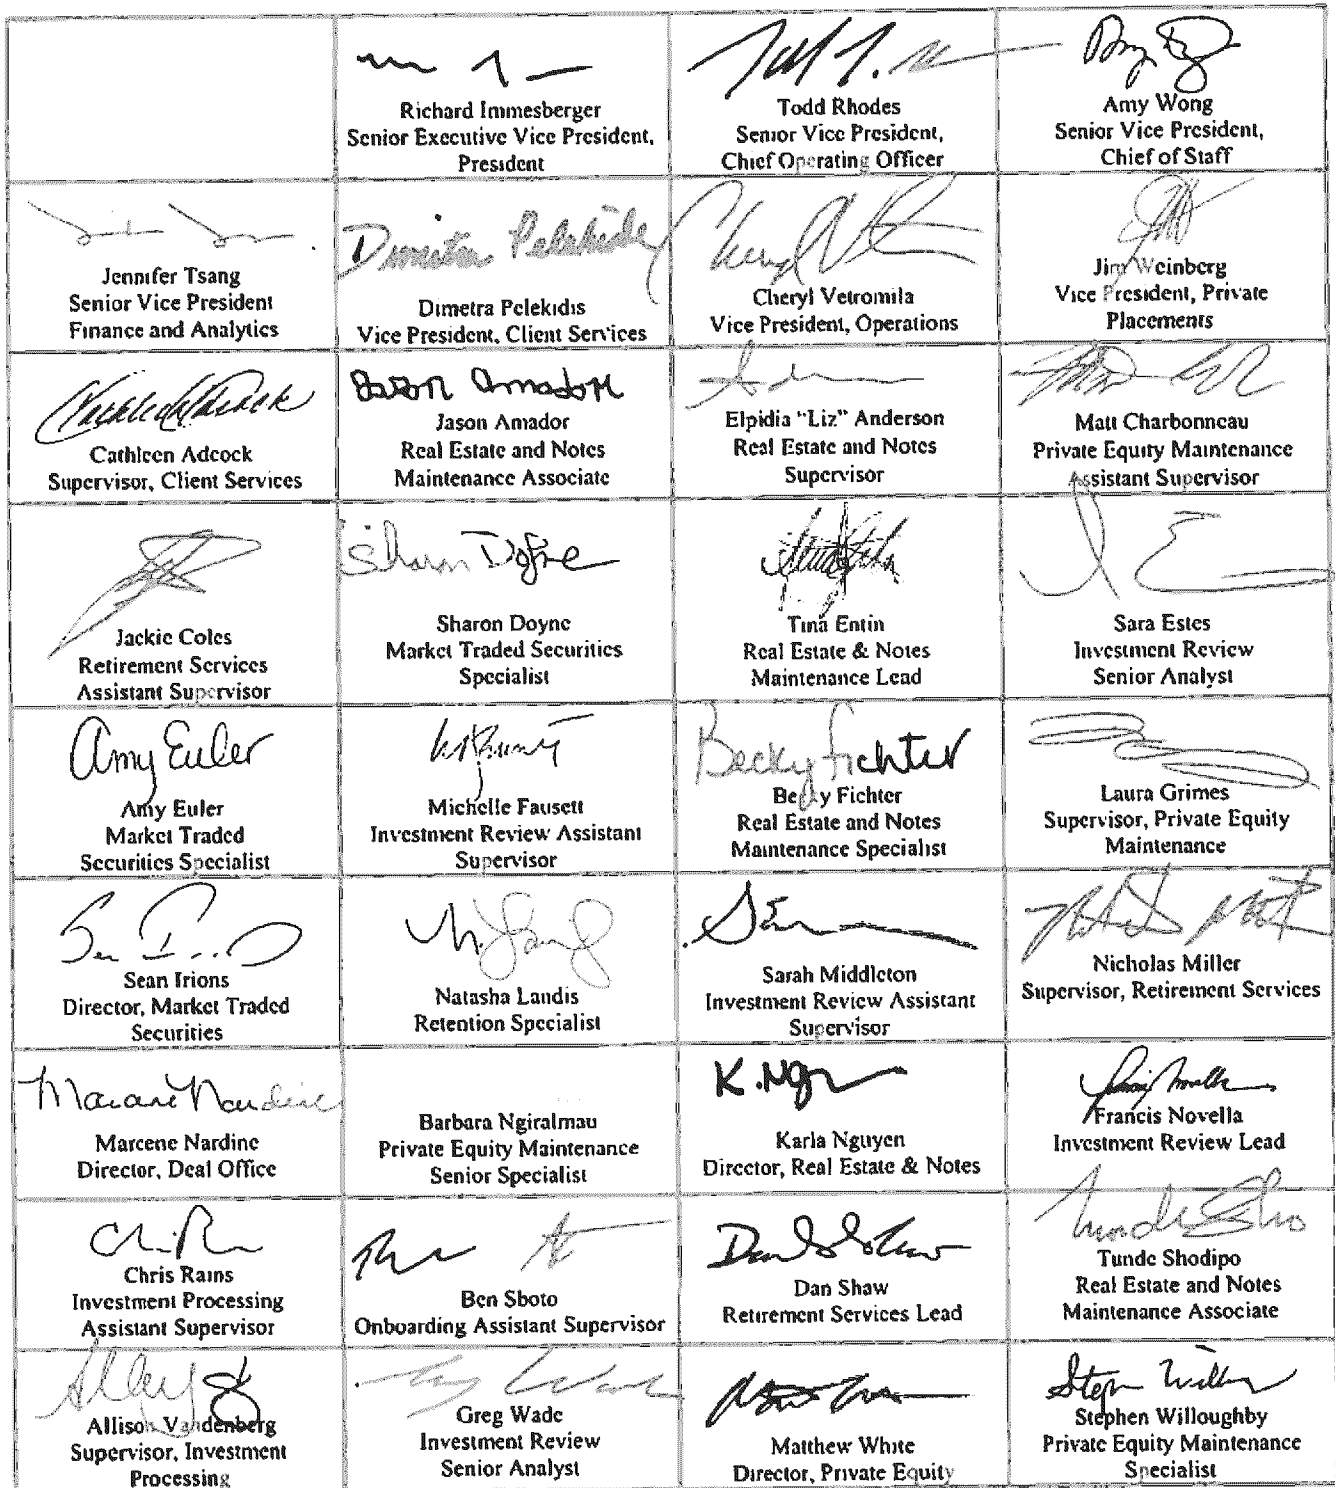 Richard Immesberger
Senior Executive Vice President,
President
Todd Rhodes
Senior Vice President,
Chief Operating Officer
Amy Wong
Senior Vice President,
Chief of Staff
Jennifer Tsang
Senior Vice President
Finance and Analytics
Dimetra Pelekidis
Dimetra Pelekidis
Vice President, Client Services
Cheryl Vetromila
Vice President, Operations
Jim Weinberg
Vice President, Private
Placements
Cathleen Adcock
Supervisor, Client Services
Jason Amador
Jason Amador
Real Estate and Notes
Maintenance Associate
Elpidia "Liz" Anderson
Real Estate and Notes
Supervisor
Matt Charbonneau
Private Equity Maintenance
Assistant Supervisor
Jackie Coles
Retirement Services
Assistant Supervisor
Sharon Doyne
Sharon Doyne
Market Traded Securities
Specialist
Tina Entin
Real Estate & Notes
Maintenance Lead
Sara Estes
Investment Review
Senior Analyst
Amy Euler
Amy Euler
Market Traded
Securities Specialist
Michelle Fausett
Investment Review Assistant
Supervisor
Becky Fichter
Becky Fichter
Real Estate and Notes
Maintenance Specialist
Laura Grimes
Supervisor, Private Equity
Maintenance
Sean Irions
Director, Market Traded
Securities
Natasha Landis
Retention Specialist
Sarah Middleton
Investment Review Assistant
Supervisor
Nicholas Miller
Supervisor, Retirement Services
Marcene Nardine
Marcene Nardine
Director, Deal Office
Barbara Ngiralmau
Private Equity Maintenance
Senior Specialist
Karla Nguyen
Director, Real Estate & Notes
Francis Novella
Investment Review Lead
Chris Rains
Investment Processing
Assistant Supervisor
Ben Sboto
Onboarding Assistant Supervisor
Dan Shaw
Retirement Services Lead
Tunde Shodipo
Real Estate and Notes
Maintenance Associate
Allison Vandenberg
Supervisor, Investment
Processing
Greg Wade
Investment Review
Senior Analyst
Matthew White
Director, Private Equity
Stephen Willoughby
Private Equity Maintenance
Specialist